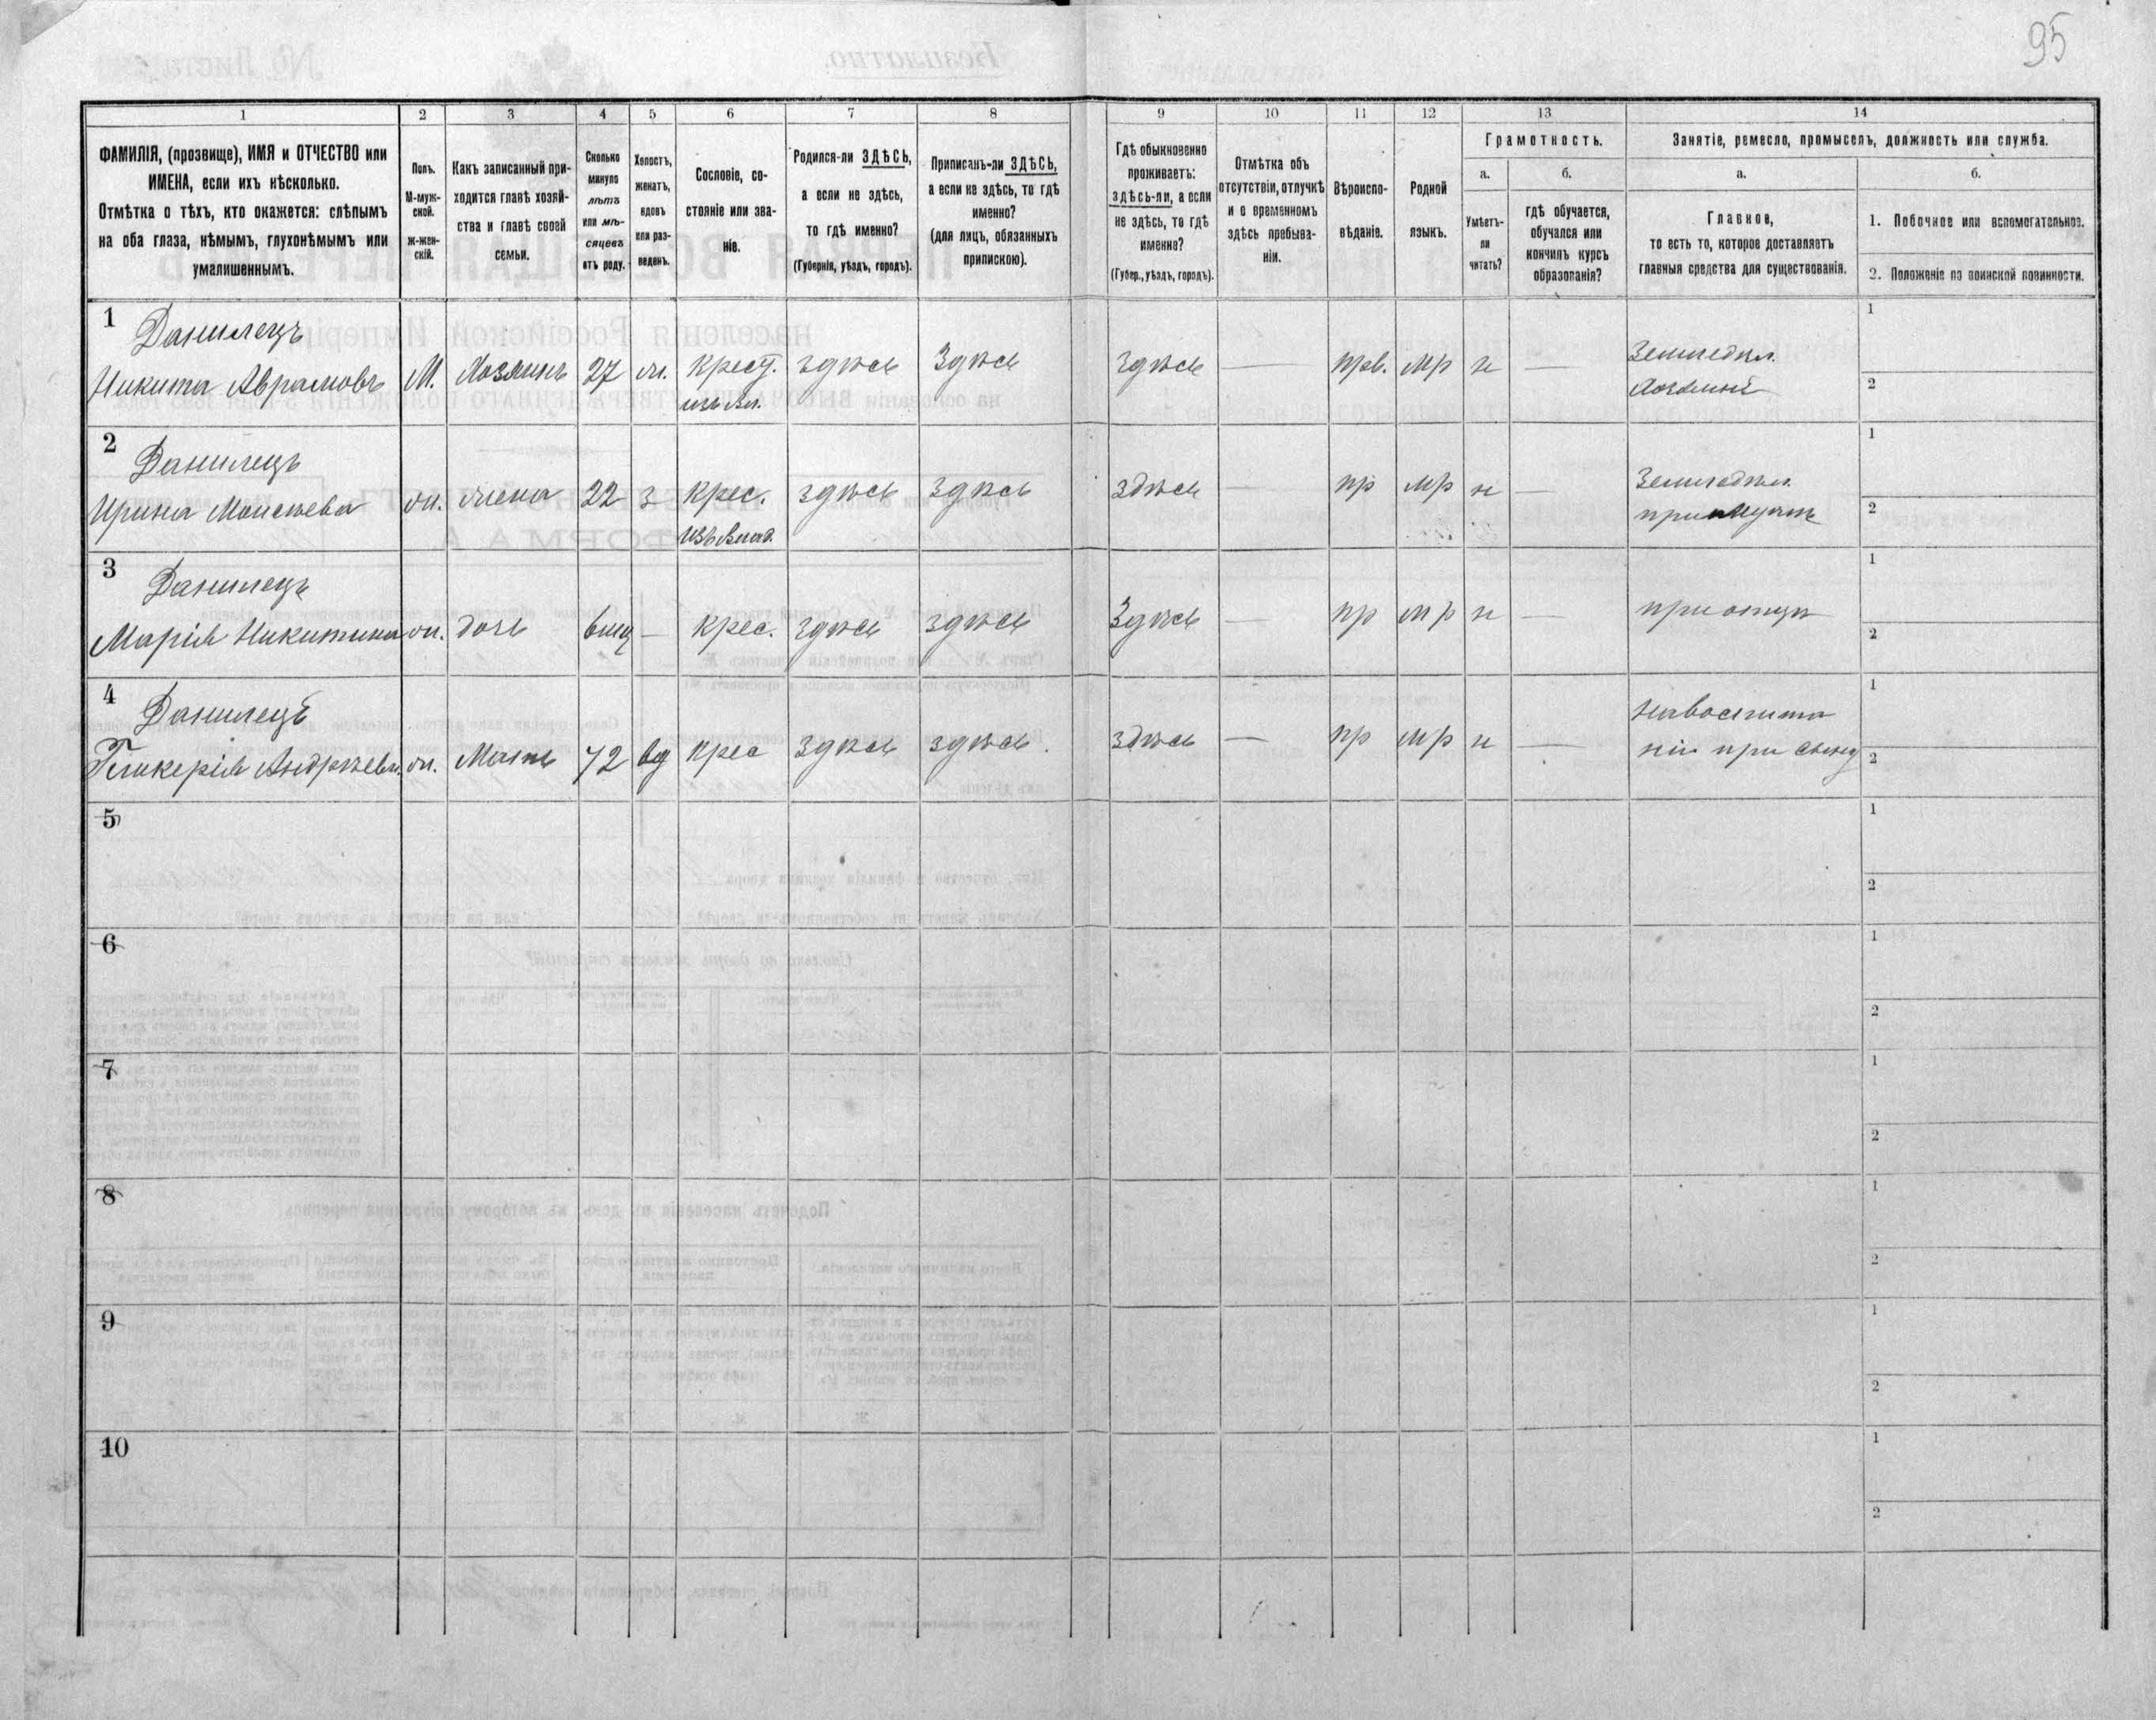 95
1
2
3
4
5
6
7
8
9
10
11
12
13
14
ФАМИЛІЯ, (прозвище), ИМЯ и ОТЧЕСТВО или
ИМЕНА, если ихъ нѣсколько.
Отмѣтка о тѣхъ, кто окажется: слѣпымъ
на оба глаза, нѣмымъ, глухонѣмымъ или
умалишеннымъ.
Полъ.
М-муж-
ской.
Ж-жен-
скій.
Какъ записанный при-
ходится главѣ хозяй-
ства и главѣ своей
семьи.
Сколько
минуло
лѣтъ
или мѣ-
сяцевъ
отъ роду.
Холостъ,
женатъ,
вдовъ
или раз-
веденъ.
Сословіе, со-
стояніе или зва-
ніе.
Родился-ли ЗДѢСЬ,
а если не здѣсь,
то гдѣ именно?
(Губернія, уѣздъ, городъ).
Приписанъ-ли ЗДѢСЬ,
а если не здѣсь, то гдѣ
именно?
(для лицъ, обязанныхъ
припискою).
Гдѣ обыкновенно
проживаетъ:
здѣсь-ли, а если
не здѣсь, то гдѣ
именно?
(Губер., уѣздъ, городъ).
Отмѣтка объ
отсутствіи, отлучкѣ
и о временномъ
здѣсь пребыва-
ніи.
Вѣроиспо-
вѣданіе.
Родной
языкъ.
Грамотность.
а.
Умѣетъ-
ли
читать?
б.
гдѣ обучается,
обучался или
кончилъ курсъ
образованія?
Занятіе, ремесло, промыселъ, должность или служба.
а.
Главное,
то есть то, которое доставляетъ
главныя средства для существованія.
б.
1. Побочное или вспомогательное.
2. Положеніе по воинской повинности.
1 Данилецъ
Никита Аврамовъ М. Хозяинъ 27 ж. Крест. здѣсь Здѣсь Здѣсь — прв. мр н — Земледѣл.
изъ вл. Хозяинъ
1
2
2 Данилецъ
Ирина Моисѣева ж. жена 22 з крес. здѣсь здѣсь здѣсь — пр мр н — Земледѣл.
изъ влад. при мужѣ
1
2
3 Данилецъ
Марія Никитина ж. дочь 6 мц — крес. здѣсь здѣсь Здѣсь — пр мр н — при отцѣ
1
2
4 Данилецъ
Гликерія Андрѣева ж. Мать 72 вд крес здѣсь здѣсь здѣсь — пр мр н — на воспита
ніи при сыну
1
2
5
1
2
6
1
2
7
1
2
8
1
2
9
1
2
10
1
2